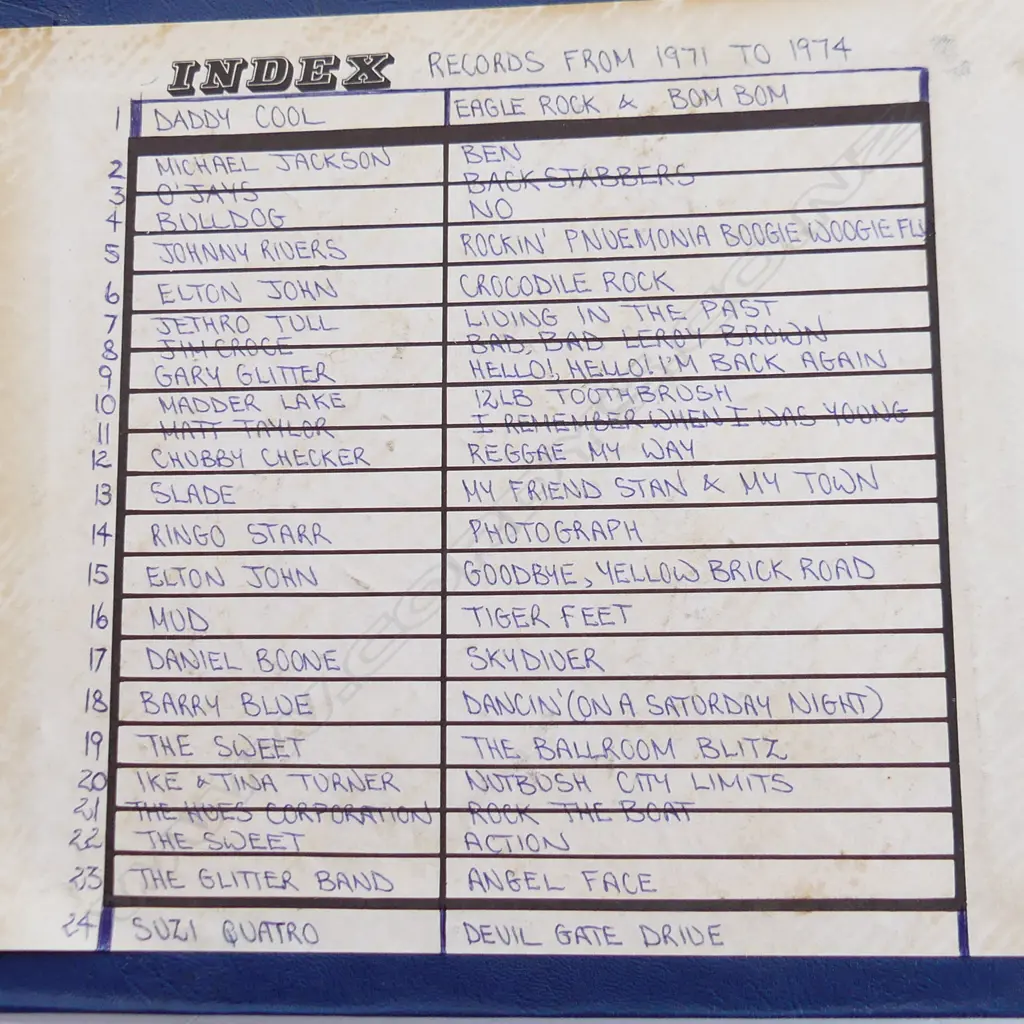 INDEX RECORDS FROM 1971 TO 1974
1 DADDY COOL EAGLE ROCK & BOM BOM
2 MICHAEL JACKSON BEN
3 O'JAYS BACK STABBERS
4 BULLDOG NO
5 JOHNNY RIVERS ROCKIN' PNUEMONIA BOOGIE WOOGIE FLU
6 ELTON JOHN CROCODILE ROCK
7 JETHRO TULL LIVING IN THE PAST
8 JIM CROCE BAD, BAD LEROY BROWN
9 GARY GLITTER HELLO!, HELLO! I'M BACK AGAIN
10 MADDER LAKE 12LB TOOTHBRUSH
11 MATT TAYLOR I REMEMBER WHEN I WAS YOUNG
12 CHUBBY CHECKER REGGAE MY WAY
13 SLADE MY FRIEND STAN & MY TOWN
14 RINGO STARR PHOTOGRAPH
15 ELTON JOHN GOODBYE, YELLOW BRICK ROAD
16 MUD TIGER FEET
17 DANIEL BOONE SKYDIVER
18 BARRY BLUE DANCIN' (ON A SATURDAY NIGHT)
19 THE SWEET THE BALLROOM BLITZ
20 IKE & TINA TURNER NUTBUSH CITY LIMITS
21 THE HUES CORPORATION ROCK THE BOAT
22 THE SWEET ACTION
23 THE GLITTER BAND ANGEL FACE
24 SUZI QUATRO DEVIL GATE DRIVE